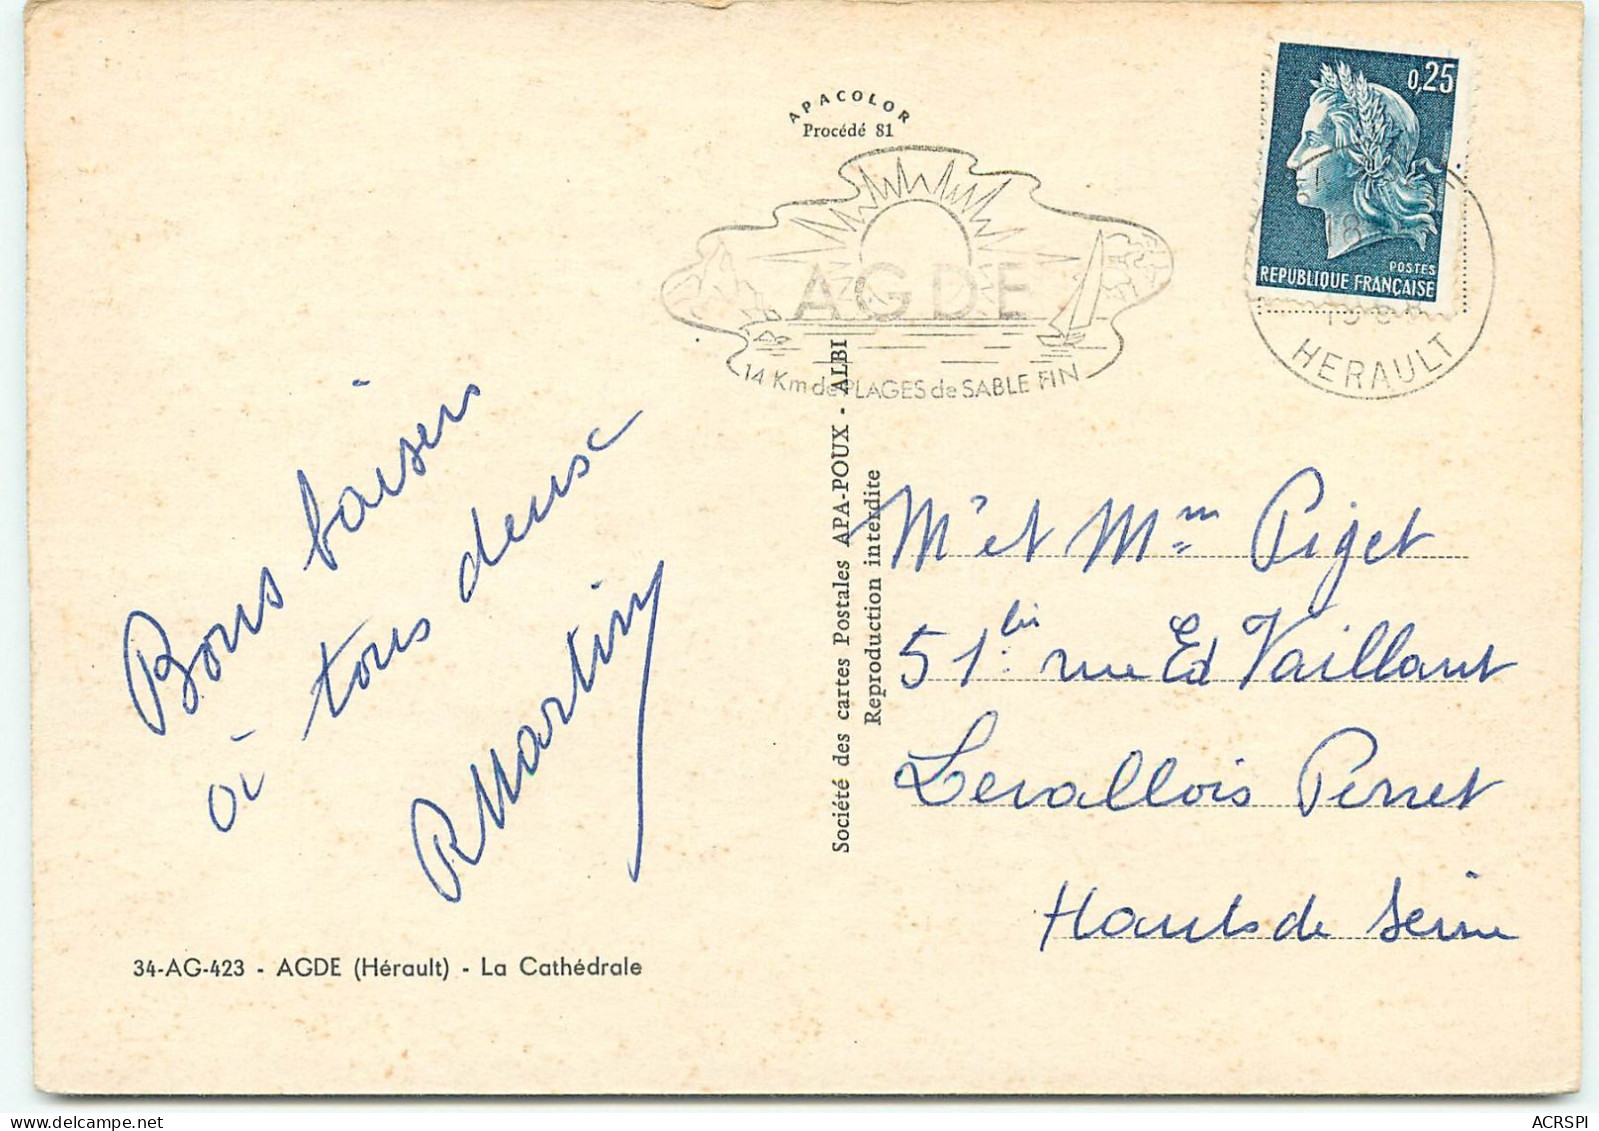 APACOLOR
Procédé 81
0,25
POSTES
REPUBLIQUE FRANÇAISE
AGDE
14 Km de PLAGES de SABLE FIN
18
HERAULT
Bons baisers
à tous deux
R Martin
Société des cartes Postales APA-POUX - ALBI
Reproduction interdite
Mr et Mme Piget
51 bis rue Ed Vaillant
Levallois Perret
Hauts de Seine
34-AG-423 - AGDE (Hérault) - La Cathédrale
ACRSPI